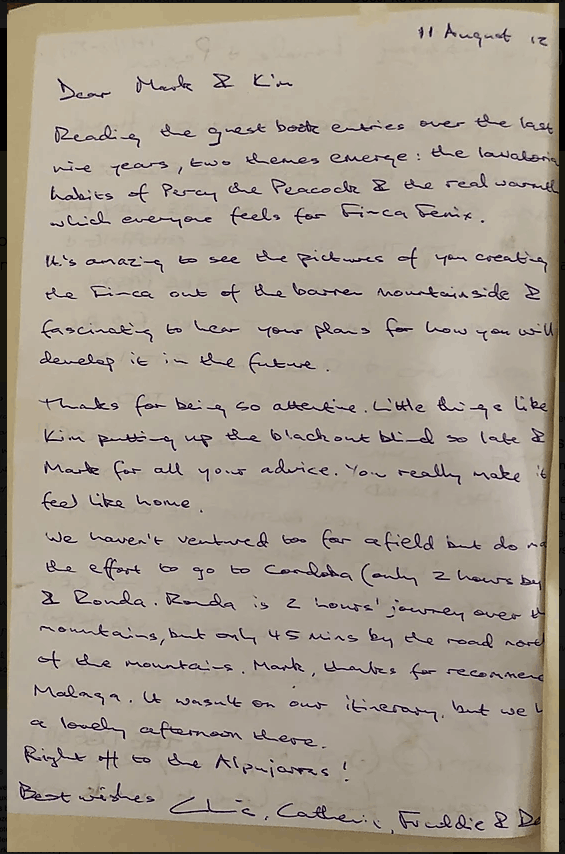 11 August 12
Dear Mark & Kim
Reading the guest book entries over the last
nine years, two themes emerge: the lavatorial
habits of Percy the Peacock & the real warmth
which everyone feels for Finca Fenix.
It's amazing to see the pictures of you creating
the Finca out of the barren mountainside &
fascinating to hear your plans for how you will
develop it in the future.
Thanks for being so attentive. Little things like
Kim putting up the blackout blind so late &
Mark for all your advice. You really make it
feel like home.
We haven't ventured too far afield but do
the effort to go to Cordoba (only 2 hours by
& Ronda. Ronda is 2 hours' journey over
mountains, but only 45 mins by the road
of the mountains. Mark, thanks for recommen
Malaga. It wasn't on our itinerary, but we
a lovely afternoon there.
Right off to the Alpujarras!
Best wishes Catherine, Freddie &